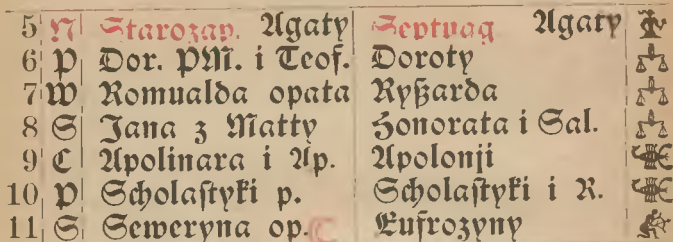 5 N Starozap. Agaty Septuag Agaty
6 P Dor. PM. i Teof. Doroty
7 W Romualda opata Ryßarda
8 S Jana z Matty Honorata i Sal.
9 C Apolinara i Ap. Apolonji
10 P Scholaſtyki p. Scholaſtyki i R.
11 S Seweryna op. Eufrozyny